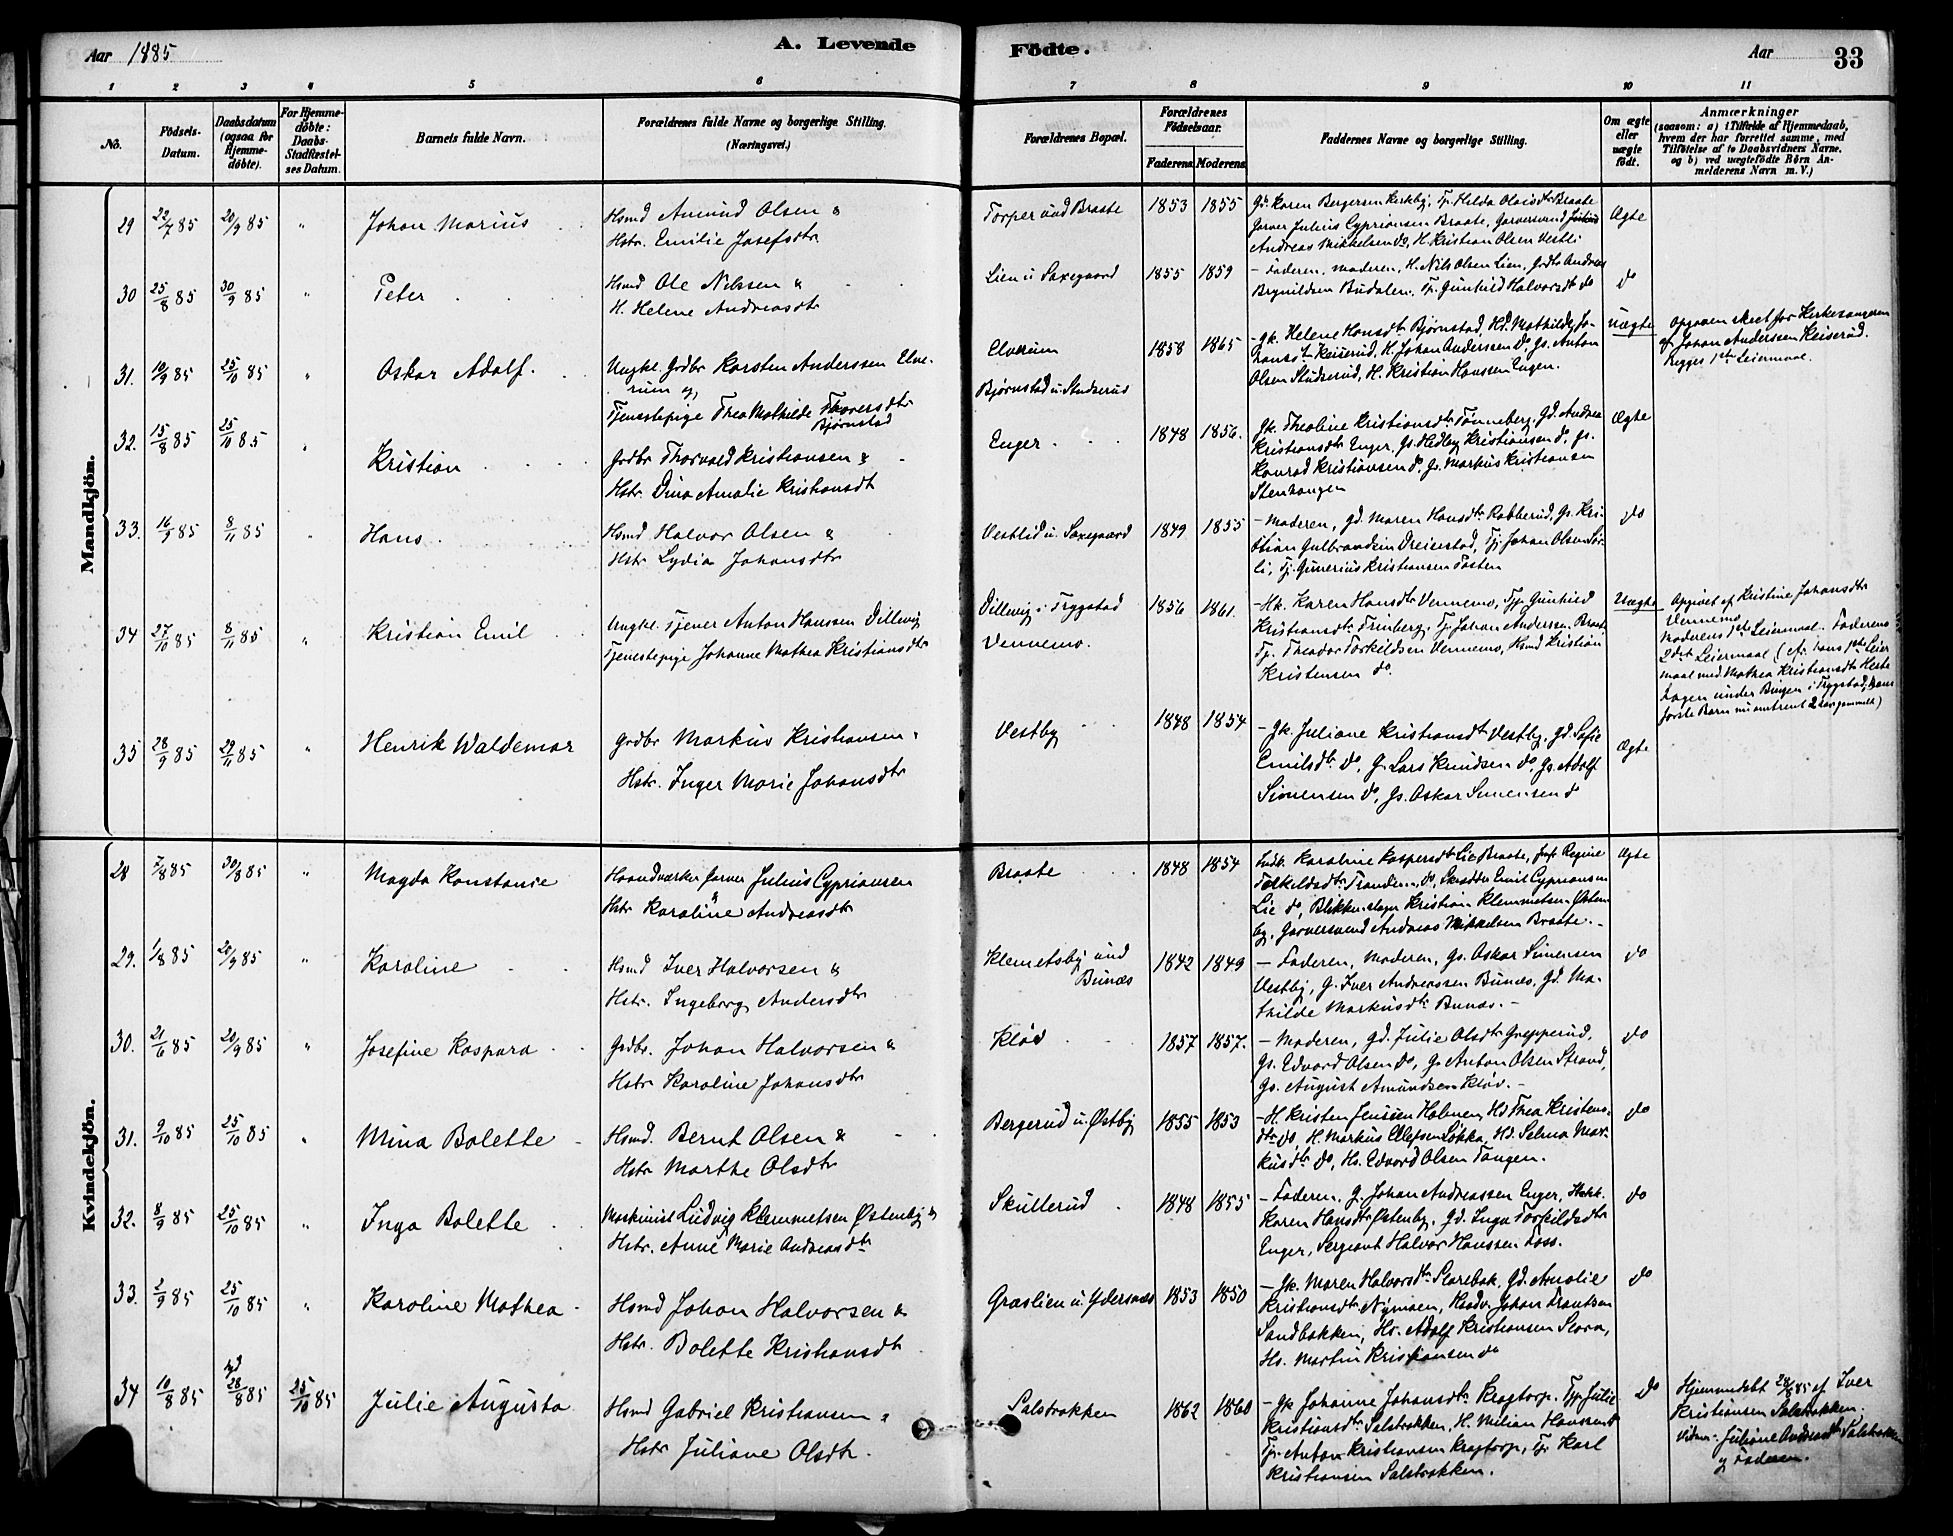 Aar 1885
A. Levende
Födte.
Aar
33
1 2 3 4 5 6 7 8 9 10 11
No.
Födsels-Datum.
Daabsdatum (ogsaa for Hjemme-döbte).
For Hjemme-döbte: Daabs-Stadfæstel-ses Datum.
Barnets fulde Navn.
Forældrenes fulde Navne og borgerlige Stilling. (Næringsvei.)
Forældrenes Bopæl.
Forældrenes Födselsaar.
Faderens. Moderens.
Faddernes Navne og borgerlige Stilling.
Om ægte eller uægte födt.
Anmærkninger
(saasom: a) i Tilfælde af Hjemmedaab,
hvem der har forrettet samme, med
Tilföielse af to Daabsvidners Navne.
og b) ved uægtefödte Börn An-
melderens Navn m. V.)
Mandkjön.
29 22/7 85 20/9 85 " Johan Marius
Hsmd Amund Olsen &
Hstr. Emilie Josefsdtr
Torper und Braate 1853 1855
Gk. Karen Bergersen Kirkeby, Tp. Hilda Olausdtr Braate
Garver Julius Cypriansen Braate, Garversvend
Andreas Mikkelsen do, H. Kristian Olsen Vestli
Ægte
30 25/8 85 30/9 85 " Peter
Hsmd Ole Nilssen &
H. Helene Andreasdtr
Lien u Saxegaard 1855 1859
- Faderen, Moderen, H. Nils Olsen Lien, Grdbr Andreas
Brynildsen Budalen, Tp. Gunhild Halvorsdtr do
do
31. 10/9 85 25/10 85 " Oskar Adolf.
Ungkl. Grdbr Karsten Anderssen Elve-
rum og
Tjenestepige Thea Mathilde Thoresdtr
Bjørnstad
Elverum
Bjørnstad u. Studserud
1858 1865
- Gk. Helene Hansdtr Bjørnstad, Hd. Mathilde Jo-
hansdtr Keiserud, H. Johan Anderssen do, Gs. Anton
Olsen Studserud, H. Kristian Hanssen Engen.
Uægte
Opgaven skeet for Kirkesangeren
af Johan Anderssen Keiserud.
Begges 1ste Leiermaal.
32. 15/8 85 25/10 85 " Kristian
Grdbr Thorvald Kristiansen &
Hstr. Dina Amalie Kristiansdt
Enger 1848 1856.
Gk. Theoline Kristiansdtr Tønneberg, Gd. Andrea
Kristiansdtr Enger, Gs. Hedley Kristiansen do, Gs.
Konrad Kristiansen do, Gs. Markus Kristiansen
Stenhaugen
Ægte
33. 16/9 85 8/11 85 " Hans.
Hsmd Halvor Olsen &
Hstr Lydia Johansdtr
Vestlid u. Saxegaard 1849 1855
- Moderen, Gd. Maren Hansdtr Rabberud, Gs. Kri-
stian Gulbrandsen Dreierstad, Tj. Johan Olsen Sør-
li, Tj. Gunerius Kristiansen Tosten
do
34 27/10 85 8/11 85 " Kristian Emil
Ungkl. Tjener Anton Hanssen Dillevig
Tjenestepige Johanne Mathea Kristiansdtr
Dillevig i Trygstad
Vennemo.
1856 1861.
- Hk. Karen Hansdtr Vennemo, Tp. Gunhild
Kristiansdtr Frinberg, Tj. Johan Andersen Braate
Tj. Theodor Torkildsen Vennemo, Hsmd Kristian
Kristensen do.
Uægte
Opgivet af Kristine Johansdtr
Vennemo
Moderens 1ste Leiermaal. Faderens
2det Leiermaal (cfr. hans 1ste Leier
maal med Mathea Kristiansdtr Heste
hagen under Bingen i Trygstad, hans
første Barn nu omtrent 2 Aar gammelt)
35 28/9 85 29/11 85 " Henrik Waldemar
Grdbr Markus Kristiansen &
Hstr. Inger Marie Johansdtr
Vestby 1848 1854
- Gk. Juliane Kristiansdtr Vestby, Gd. Sofie
Emilsdtr do, G. Lars Knudsen do, Gs. Adolf
Simensen do, Gs. Oskar Simensen do
Ægte
Kvindekjön.
28 7/8 85 30/8 85 " Magda Konstanse
Haandværker Garver Julius Cypriansen
&
Hstr Karoline Andreasdtr
Braate 1848 1854
Indk. Karoline Kaspersdtr Lie Braate, Frøk Regine
Torkildsdtr Trandem, do, Skrædder Emil Cypriansen
Lie do, Blikkenslager Kristian Klemmetsen Østen
by, Garversvend Andreas Mikkelsen Braate.
Ægte
29. 1/8 85 20/9 85 " Karoline
Hsmd Iver Halvorsen &
Hstr. Ingeborg Andersdtr
Klemetsby und
Bunæs
1842 1849
- Faderen, Moderen, Gs. Oskar Simensen
Vestby, G. Iver Andreassen Bunæs, Gd. Ma-
thilde Markusdtr Bunæs.
do
30. 21/6 85 20/9 85 " Josefine Kaspara
Grdbr. Johan Halvorsen &
Hstr Karoline Johansdtr
Kløv 1857 1857.
- Moderen, Gd. Julie Olsdtr Grepperud,
Gs. Edvard Olsen do, Gs Anton Olsen Strand,
Gs. August Amundsen Kløv.
do
31. 9/10 85 25/10 85 " Mina Bolette
Hsmd. Bernt Olsen &
Hstr Marthe Olsdtr
Bergerud u. Østby 1855 1853
- H. Kristen Jenssen Holmen, Hd Thea Kristens-
dtr do, H. Markus Ellefsen Løkka, Hd. Selma Mar-
kusdtr do, Hs. Edvard Olsen Tangen.
do
32. 8/9 85 25/10 85 " Inga Bolette
Maskinist Ludvig Klemmetsen Østenby &
Hstr. Anne Marie Andreasdtr
Skullerud 1848 1855
- Faderen, G. Johan Andreassen Enger, Hstk.
Karen Hansdtr Østenby, Gd. Inga Torkildsdtr
Enger, Sergeant Halvor Hanssen Foss.
do
33. 2/9 85 25/10 85 " Karoline Mathea
Hsmd Johan Halvorsen &
Hstr. Bolette Kristiansdt
Graslien u. Ydersnæs 1853 1850
- Gk. Maren Halvorsdtr Slorebak, Gd. Amalie
Kristiansdtr Nymoen, Haandv. Johan Frantsen
Sandbakken, Hs. Adolf Kristiansen Slora,
Hs. Martin Kristiansen do
do
34 10/8 85 hd 28/8 85 25/10 85 Julie Augusta
Hsmd Gabriel Kristiansen &
Hstr Juliane Olsdtr.
Salstrokken 1862 1860
- Gk Johanne Johansdtr Kragtorp, Tp. Julie
Kristiansdtr Salstrokken, H. Milian Hanssen do
Tj. Anton Kristiansen Kragtorp, Tj. Karl
Kristiansen Salstrokken.
do
Hjemmedøbt 28/8 85 af Iver
Kristiansen Salstrokken.
Vidner: Juliane Andreasdtr Salstrokken
og Faderen.